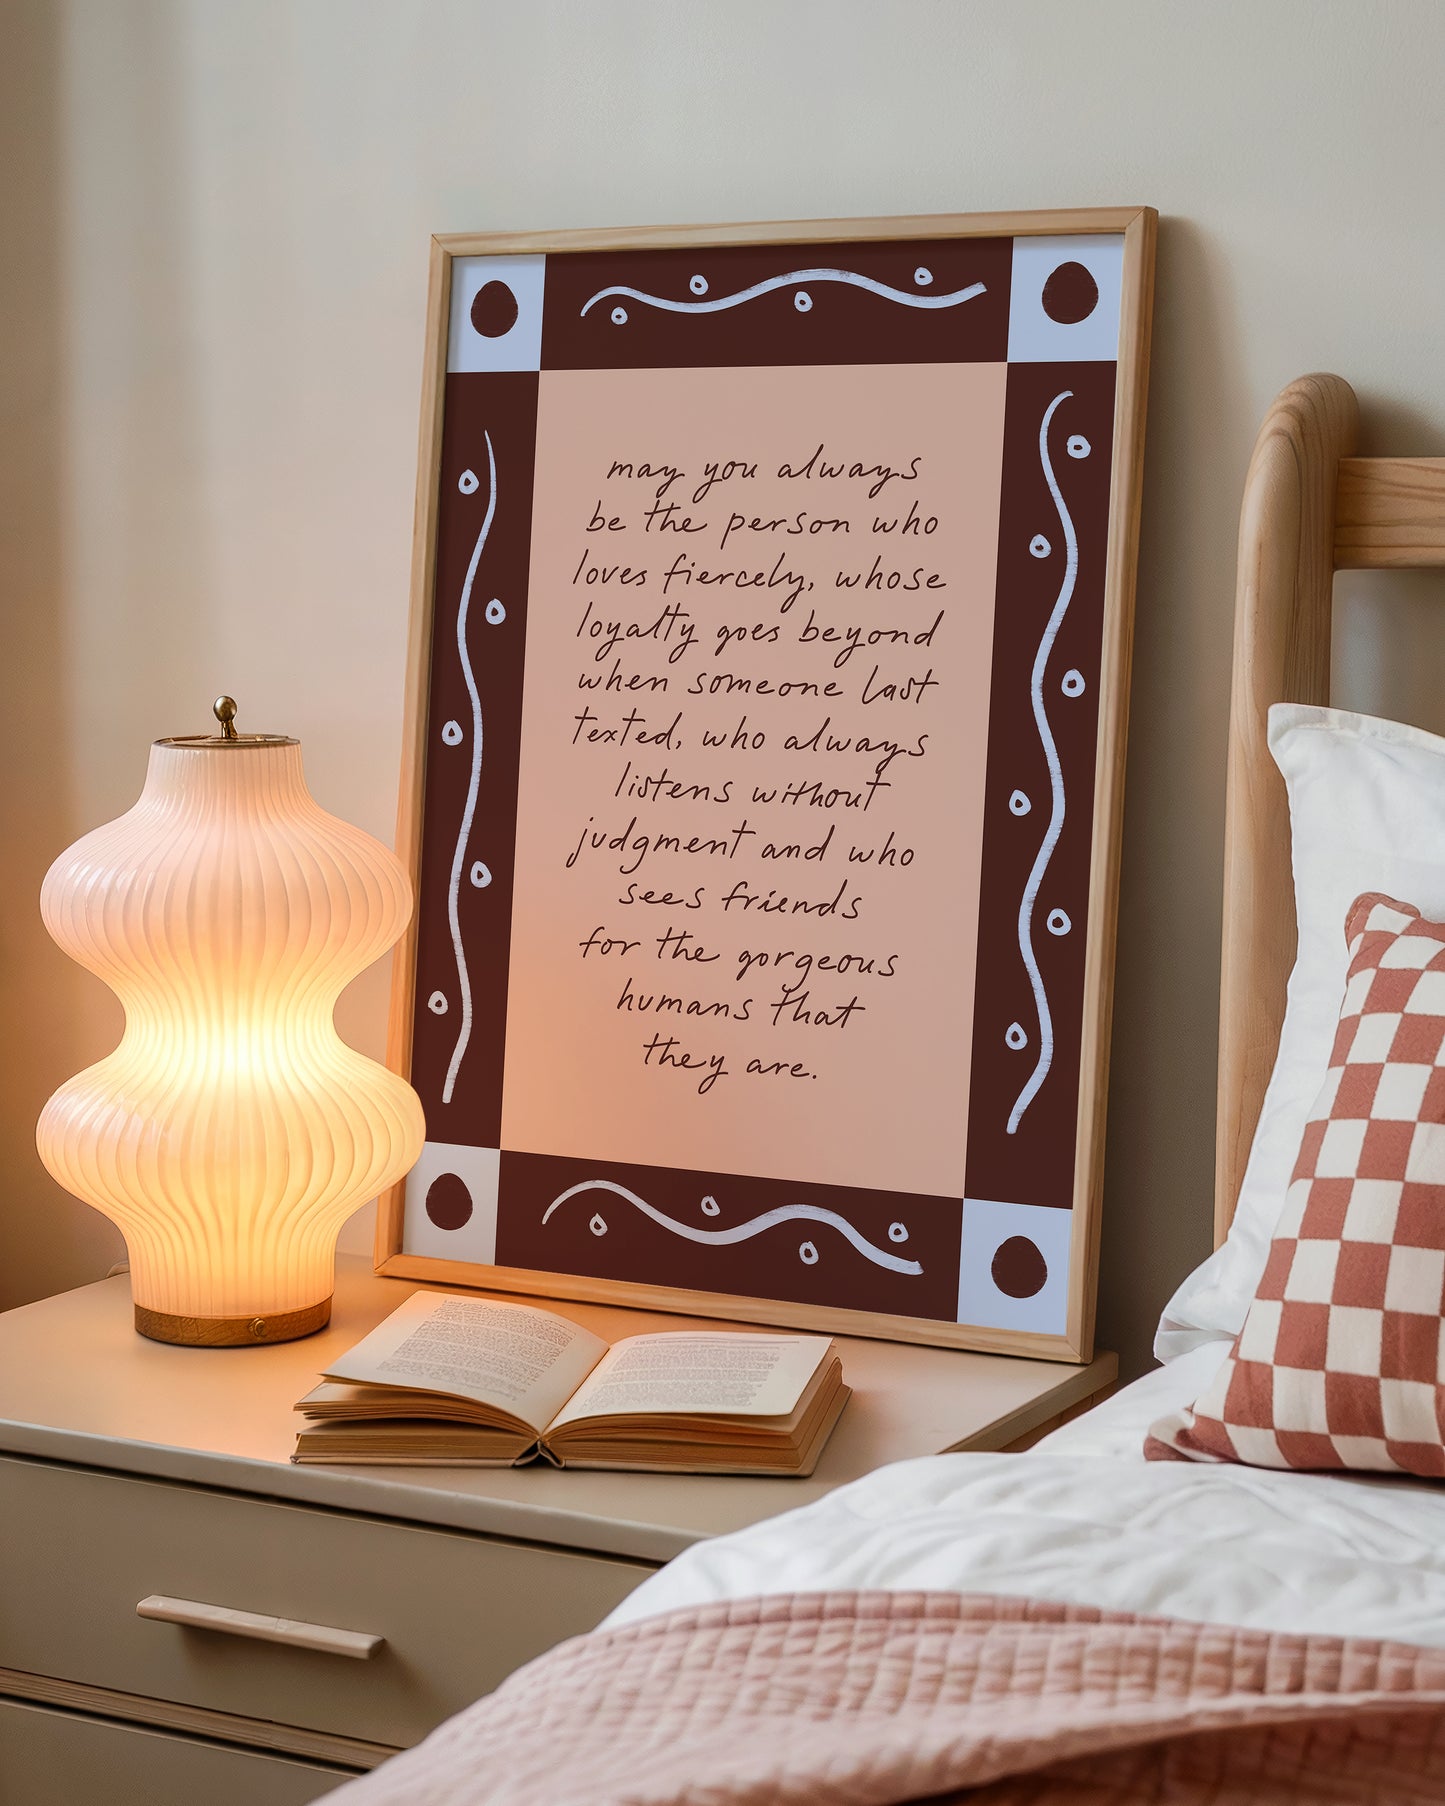 may you always
be the person who
loves fiercely, whose
loyalty goes beyond
when someone last
texted, who always
listens without
judgment and who
sees friends
for the gorgeous
humans that
they are.